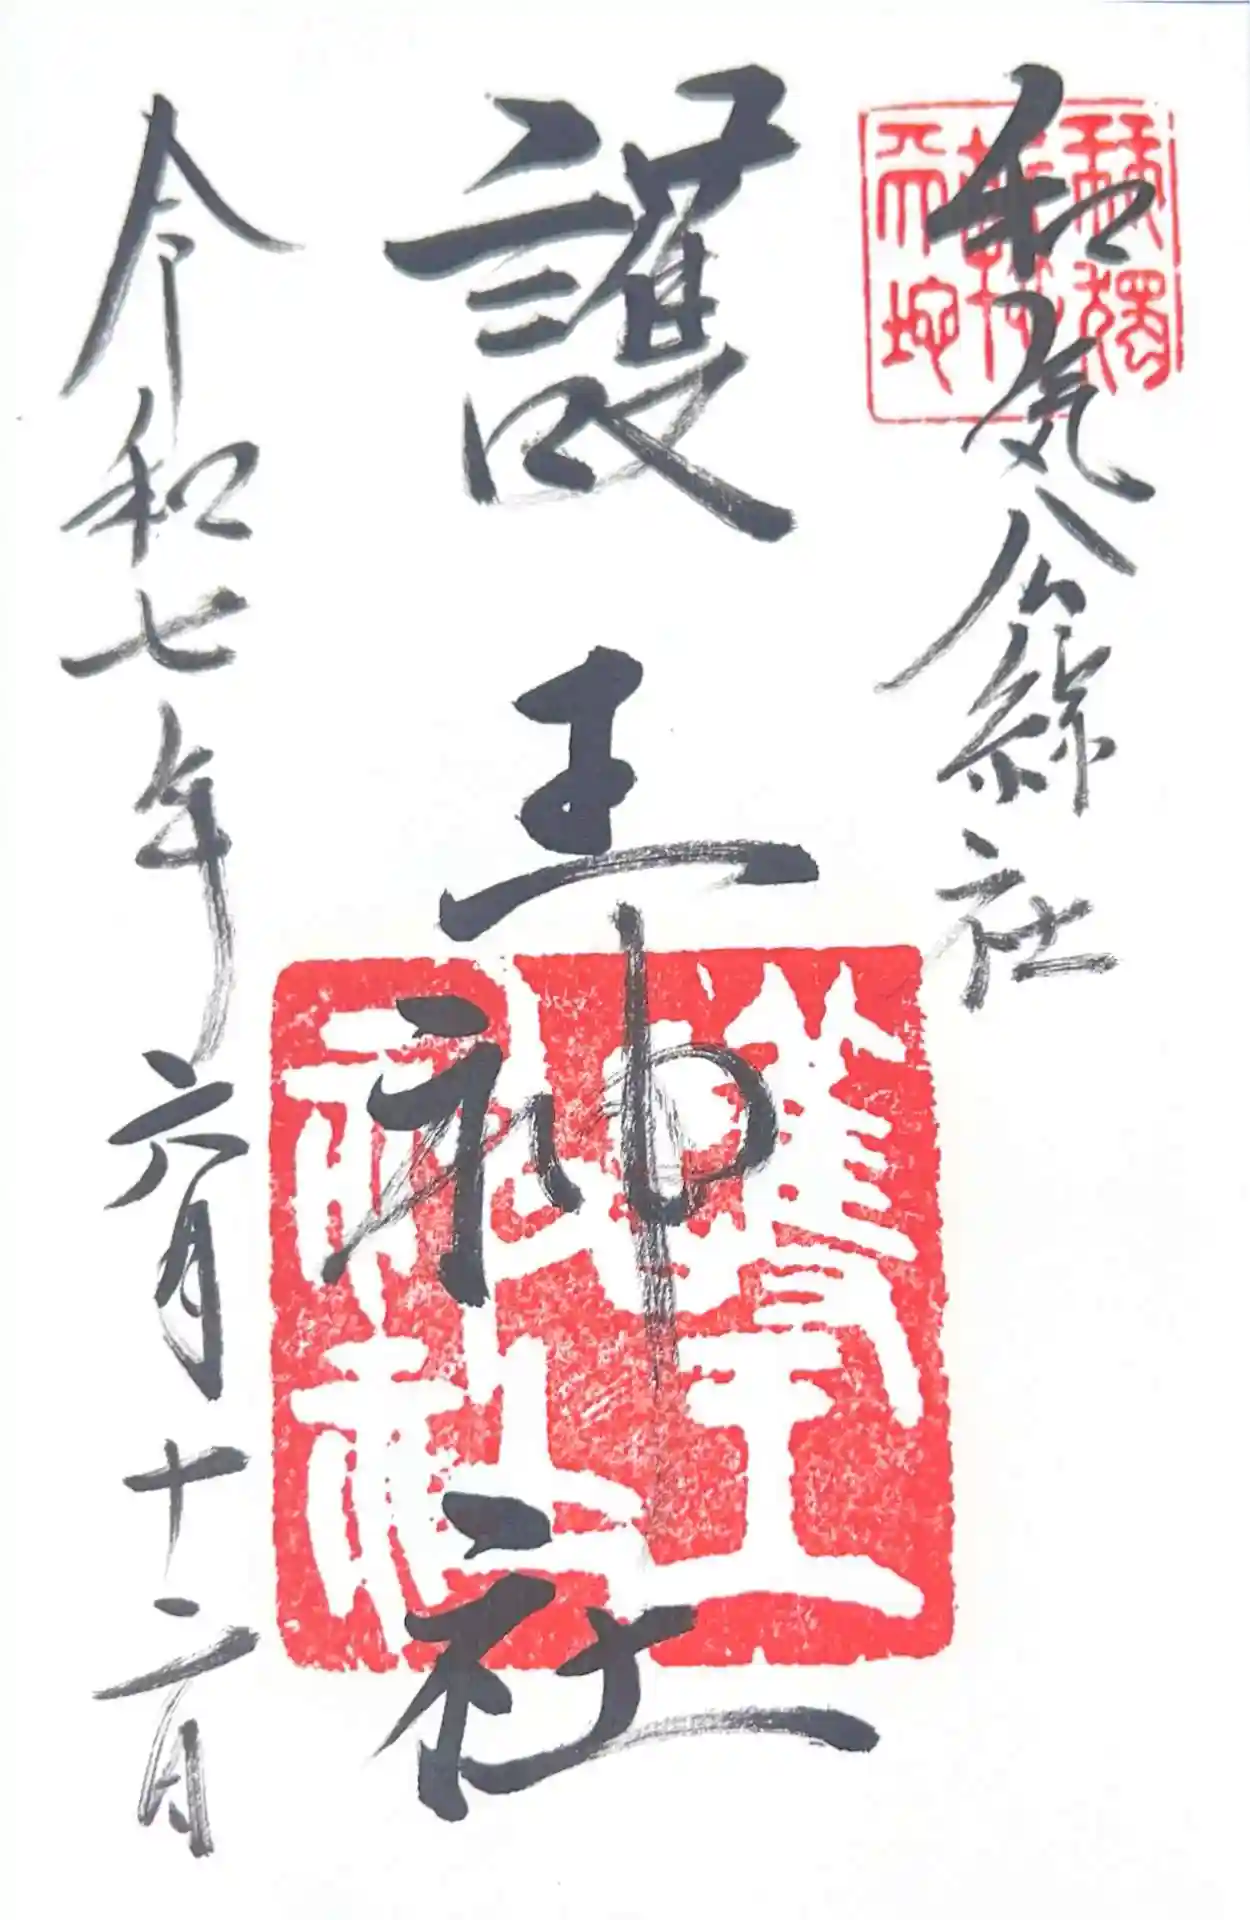 和気公綜社
護王神社
令和七年六月十二日
護王神社